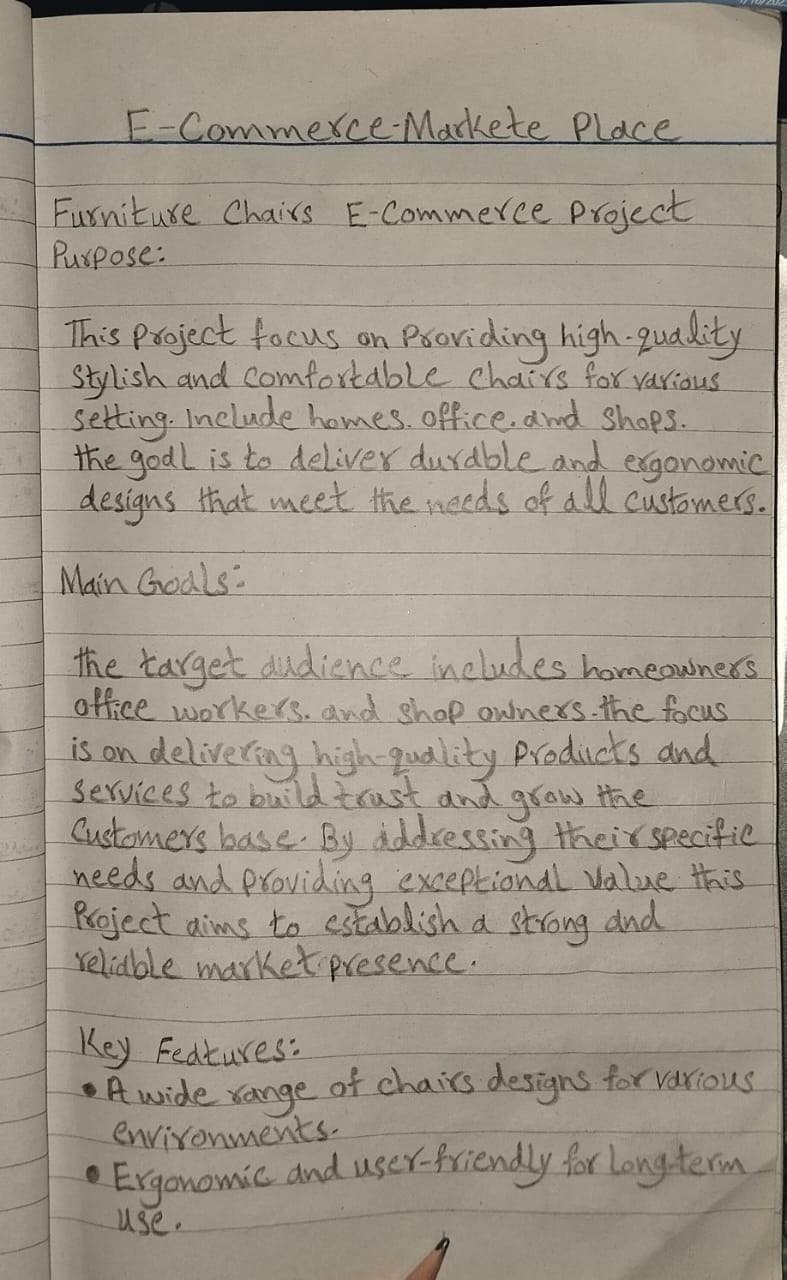 E-Commerce-Markete Place
Furniture Chairs E-Commerce Project
Purpose:
This project focus on Providing high-quality
Stylish and comfortable Chairs for various
setting. Include homes. office. and Shops.
the goal is to deliver durable and ergonomic
designs that meet the needs of all customers.
Main Goals:
the target audience includes homeowners
office workers. and shop owners. the focus
is on delivering high-quality Products and
services to build trust and grow the
Customers base. By addressing their specific
needs and providing exceptional value this
Project aims to establish a strong and
reliable market presence.
Key Features:
• A wide range of chairs designs for various
environments.
• Ergonomic and user-friendly for long-term
use.